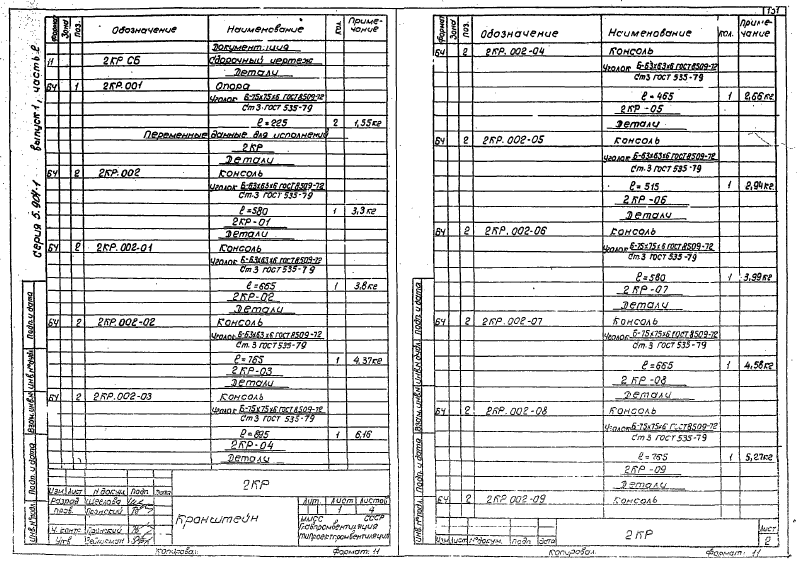 серия 5.904-1 выпуск 1, часть 2
Формат Зона Поз. Обозначение Наименование Кол. Приме-чание
Документация
11 2КР СБ Сборочный чертеж
Детали
БЧ 1 2КР.001 Опора
Уголок Б-75х75х6 ГОСТ 8509-72
Ст3 ГОСТ 535-79
ℓ=225 2 1,55кг
Переменные данные для исполнений
2КР
Детали
БЧ 2 2КР.002 Консоль
Уголок Б-63х63х6 ГОСТ 8509-72
Ст.3 ГОСТ 535-79
ℓ=580 1 3,3кг
2КР-01
Детали
БЧ 2 2КР.002-01 Консоль
Уголок Б-63х63х6 ГОСТ 8509-72
Ст 3 ГОСТ 535-79
ℓ=665 1 3,8кг
2КР-02
Детали
БЧ 2 2КР.002-02 Консоль
Уголок Б-63х63х6 ГОСТ 8509-72
Ст.3 ГОСТ 535-79
ℓ=765 1 4,37кг
2КР-03
Детали
БЧ 2 2КР.002-03 Консоль
Уголок Б-75х75х6 ГОСТ 8509-72
Ст.3 ГОСТ 535-79
ℓ=895 1 6,16
2КР-04
Детали
Инв.№подл. Подп. и дата Взам.инв.№ Инв.№дубл. Подп. и дата
Изм Лист № докум. Подп. Дата
2КР
Разраб
Пров.
Н.контр
Утв
Кронштейн
Лит. Лист Листов
1 4
ММСС СССР
Главпромвентиляция
Гипроектпромвентиляция
Копировал: Формат: 11
131
Формат Зона Поз. Обозначение Наименование Кол. Приме-чание
БЧ 2 2КР.002-04 Консоль
Уголок Б-63х63х6 ГОСТ 8509-72
Ст3 ГОСТ 535-79
ℓ=465 1 2,66кг
2КР-05
Детали
БЧ 2 2КР.002-05 Консоль
Уголок Б-63х63х6 ГОСТ 8509-72
Ст3 ГОСТ 535-79
ℓ=515 1 2,94кг
2КР-06
Детали
БЧ 2 2КР.002-06 Консоль
Уголок Б-75х75х6 ГОСТ 8509-72
Ст.3 ГОСТ 535-79
ℓ=580 1 3,99кг
2КР-07
Детали
БЧ 2 2КР.002-07 Консоль
Уголок Б-75х75х6 ГОСТ 8509-72
Ст.3 ГОСТ 535-79
ℓ=665 1 4,58кг
2КР-08
Детали
БЧ 2 2КР.002-08 Консоль
Уголок Б-75х75х6 ГОСТ 8509-72
Ст3 ГОСТ 535-79
ℓ=765 1 5,27кг
2КР-09
Детали
БЧ 2 2КР.002-09 Консоль
Инв.№подл. Подп. и дата Взам.инв.№ Инв.№дубл. Подп. и дата
Изм Лист № докум. Подп. Дата
2КР
Лист
2
Копировал. Формат: 11